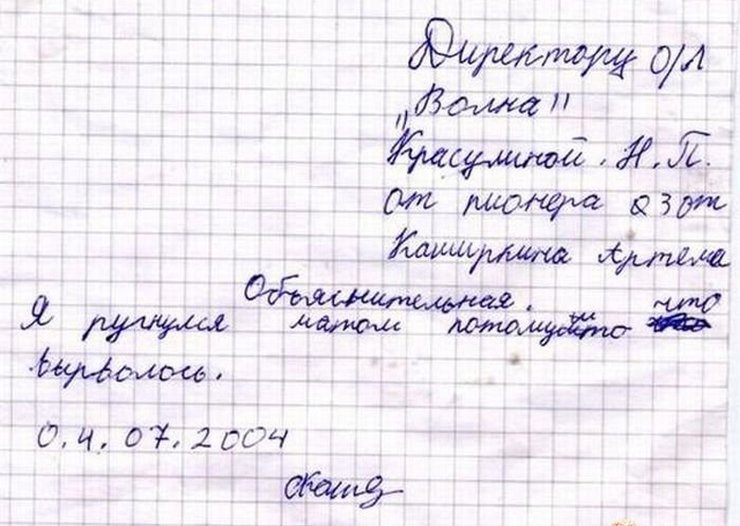 Директору О/Л
"Волна"
Красулиной. Н. П.
от пионера 2 3 от
Каширкина Артема
Объяснительная. что
Я ругнулся матом потому
вырволось.
0.4.07.2004